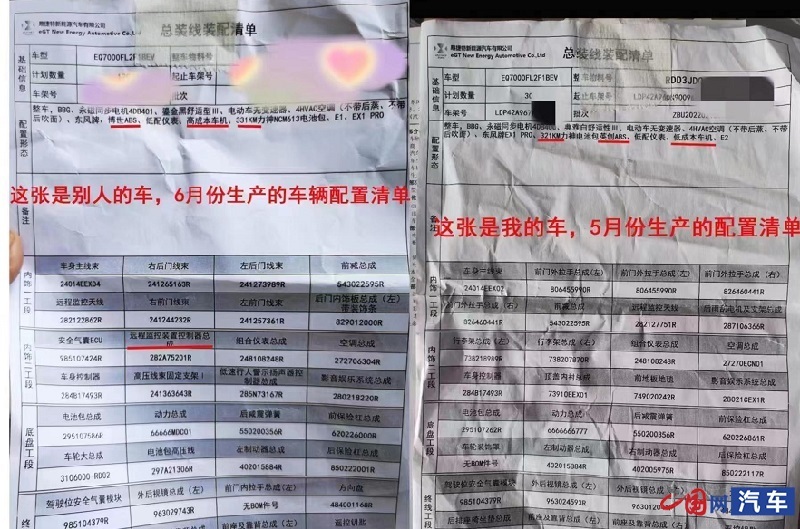 易捷特新能源汽车有限公司
eGT New Energy Automotive Co.,Ltd
总装线装配清单
基础信息
车型
EQ7000FL2F1BEV
整车物料号
计划数量
起止车架号
批次
配置形态
整车, BBG, 永磁同步电机4DB401, 鎏金黑舒适型III, 电动车无变速器, 4HVAC空调(不带后蒸、不带
后吹面), 东风牌, 博世ABS, 低配仪表, 高成本车机, 331KM力神NCM613电池包, E1, EX1 PRO
这张是别人的车，6月份生产的车辆配置清单
备注
内饰一工段
车身主线束
右后门线束
左后门线束
前减总成
24014EEX04
241265163R
241273989R
543022595R
远程监控天线
右前门线束
左前门线束
后门内饰板总成（左）带装饰条
282122862R
241242443R
241257361R
329012800R
内饰二工段
安全气囊ECU
远程监控装置控制器总成
组合仪表总成
空调总成
985107424R
282A75201R
248108248R
272706304R
车身控制器
高压线束固定支架1
低速行人警示扬声器控制器总成
影音娱乐系统总成
284B17493R
241363643R
285N73167R
280218220R
底盘工段
电池包总成
动力总成
后减震弹簧
前保险杠总成
295107586R
66666MDD01
550200356R
620226000R
车轮大总成
电池包高压线
左制动器总成
后保险杠总成
3106030-RD02
297A21306R
402015684R
850222001R
终线工段
驾驶位安全气囊模块
外后视镜总成（左）
前门内拉手总成（左）
方向盘
985104379R
963029743R
无BOM件号
484001168R
前座及靠背总成
遥控钥匙
易捷特新能源汽车有限公司
eGT New Energy Automotive Co.,Ltd
总装线装配清单
基础信息
车型
EQ7000FL2F1BEV
整车物料号
RD03JD
计划数量
30
起止车架号
车架号
批次
配置形态
后吹面), 东风牌EX1 PRO, 321KM力神电池包英创ABS, 低配仪表, 低成本车机, E2
这张是我的车，5月份生产的配置清单
备注
内饰一工段
车身主线束
前门外拉手总成（左）
前门外拉手总成（左）
前门外拉手总成（右）
24014EEX02
806455990R
806455990R
826460441R
前减总成
远程监控天线
826460441R
543022595R
282127751R
287106366R
内饰二工段
行李架总成（左）
行李架总成（右）
组合仪表总成
空调总成
738218989R
738207870R
248100243R
27270ECND1
车身控制器
顶盖内衬总成
前地板地毯
影音娱乐系统总成
284B17493R
73910EEX01
749020242R
200214EX1R
底盘工段
电池包总成
动力总成
后减震弹簧
前保险杠总成
295107262R
6666666777
550200356R
620226061R
车轮装饰罩
左制动器总成
右制动器总成
后保险杠总成
无BOM件号
402015304R
402005975R
850222117R
终线工段
驾驶位安全气囊模块
外后视镜总成（左）
外后视镜总成（右）
985104379R
963024593R
中国网 汽车